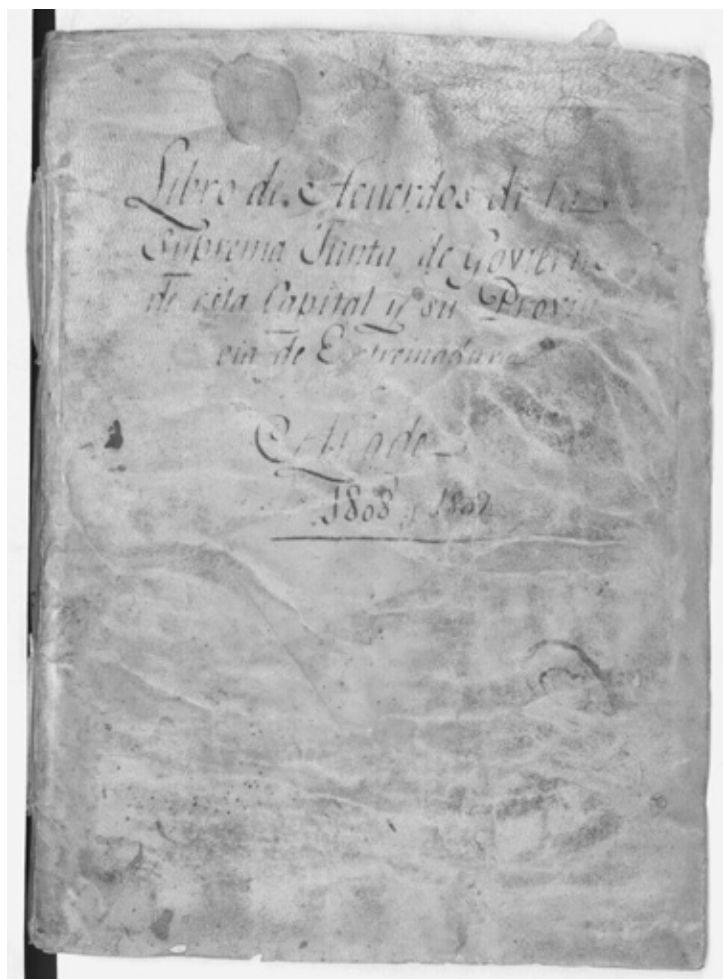 Libro de Acuerdos de la
Suprema Junta de Govierno
de esta Capital y su Provin
cia de Extremadura
Año de
1808 y 1809